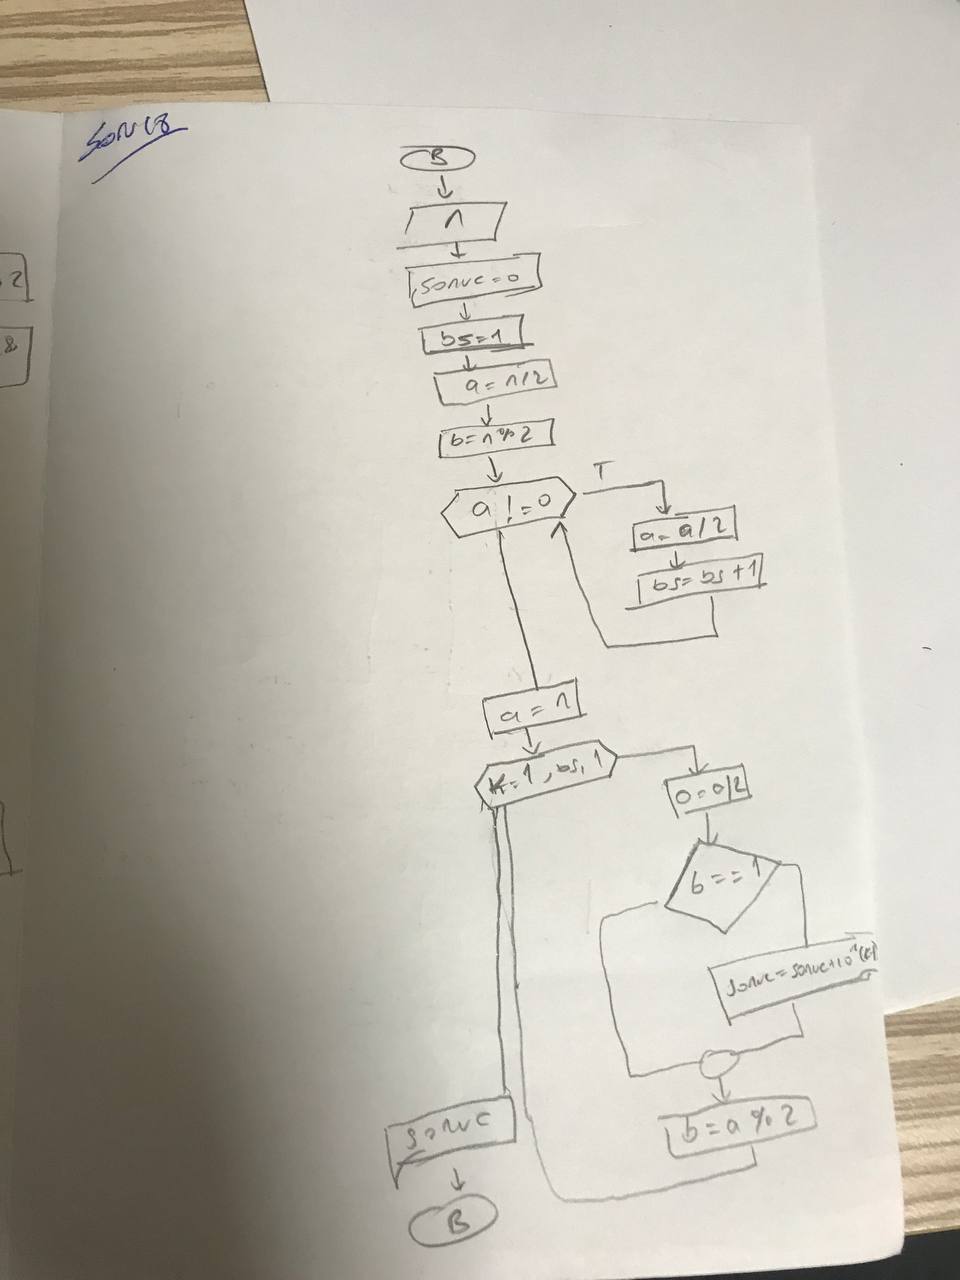 SONUC
B
n
sonuc=0
bs=1
a=n/2
b=n%2
T
a!=0
a=a/2
bs=bs+1
a=n
K=1,bs,1
a=a/2
b==1
sonuc=sonuc+10^(K-1)
b=a%2
sonuc
B
2
8